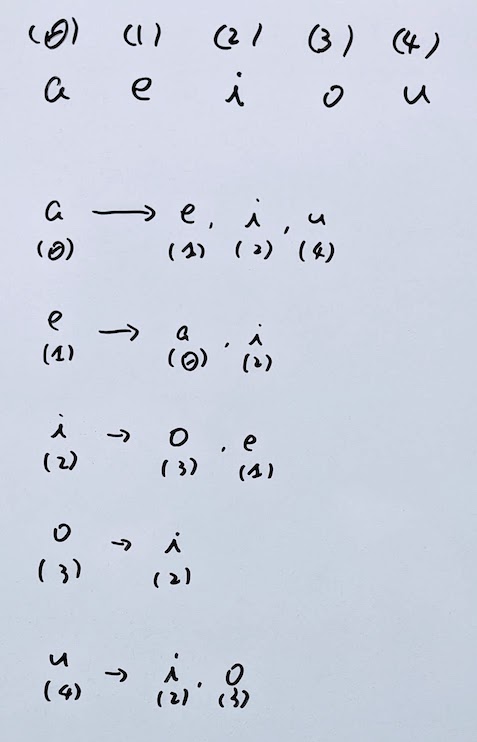 (0) (1) (2) (3) (4)
a e i o u
a → e, i, u
(0) (1) (2) (4)
e → a, i
(1) (0) (2)
i → o, e
(2) (3) (1)
o → i
(3) (2)
u → i, o
(4) (2) (3)